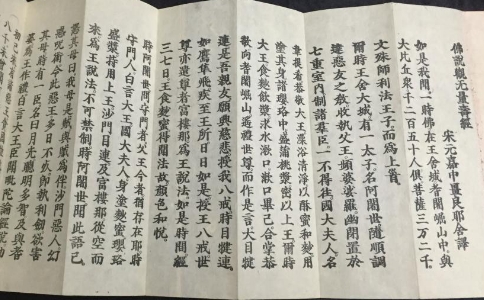 佛說觀無量壽經
宋元嘉中畺良耶舍譯
如是我聞一時佛在王舍城耆闍崛山中與
大比丘衆千二百五十人俱菩薩三萬二千
文殊師利法王子而為上首
爾時王舍大城有一太子名阿闍世隨順調
達惡友之教收執父王頻婆娑羅幽閉置於
七重室內制諸羣臣一不得往國大夫人名
韋提希恭敬大王澡浴清淨以酥蜜和麨用
塗其身諸瓔珞中盛蒲桃漿密以上王爾時
大王食麨飲漿求水漱口漱口畢已合掌恭
敬向耆闍崛山遙禮世尊而作是言大目犍
連是吾親友願興慈悲授我八戒時目犍連
如鷹隼飛疾至王所日日如是授王八戒世
尊亦遣尊者富樓那為王說法如是時間經
三七日王食麨蜜得聞法故顏色和悅
時阿闍世問守門者父王今者猶存在耶時
守門人白言大王國大夫人身塗麨蜜瓔珞
盛漿持用上王沙門目連及富樓那從空而
來為王說法不可禁制時阿闍世聞此語已
怒其母曰我母是賊與賊為伴沙門惡人幻
惑呪術令此惡王多日不死即執利劍欲害
其母時有一臣名曰月光聰明多智及與耆
婆為王作禮白言大王臣聞毗陀論經說劫
初已來有諸惡王貪國位故殺害其父一萬
八千